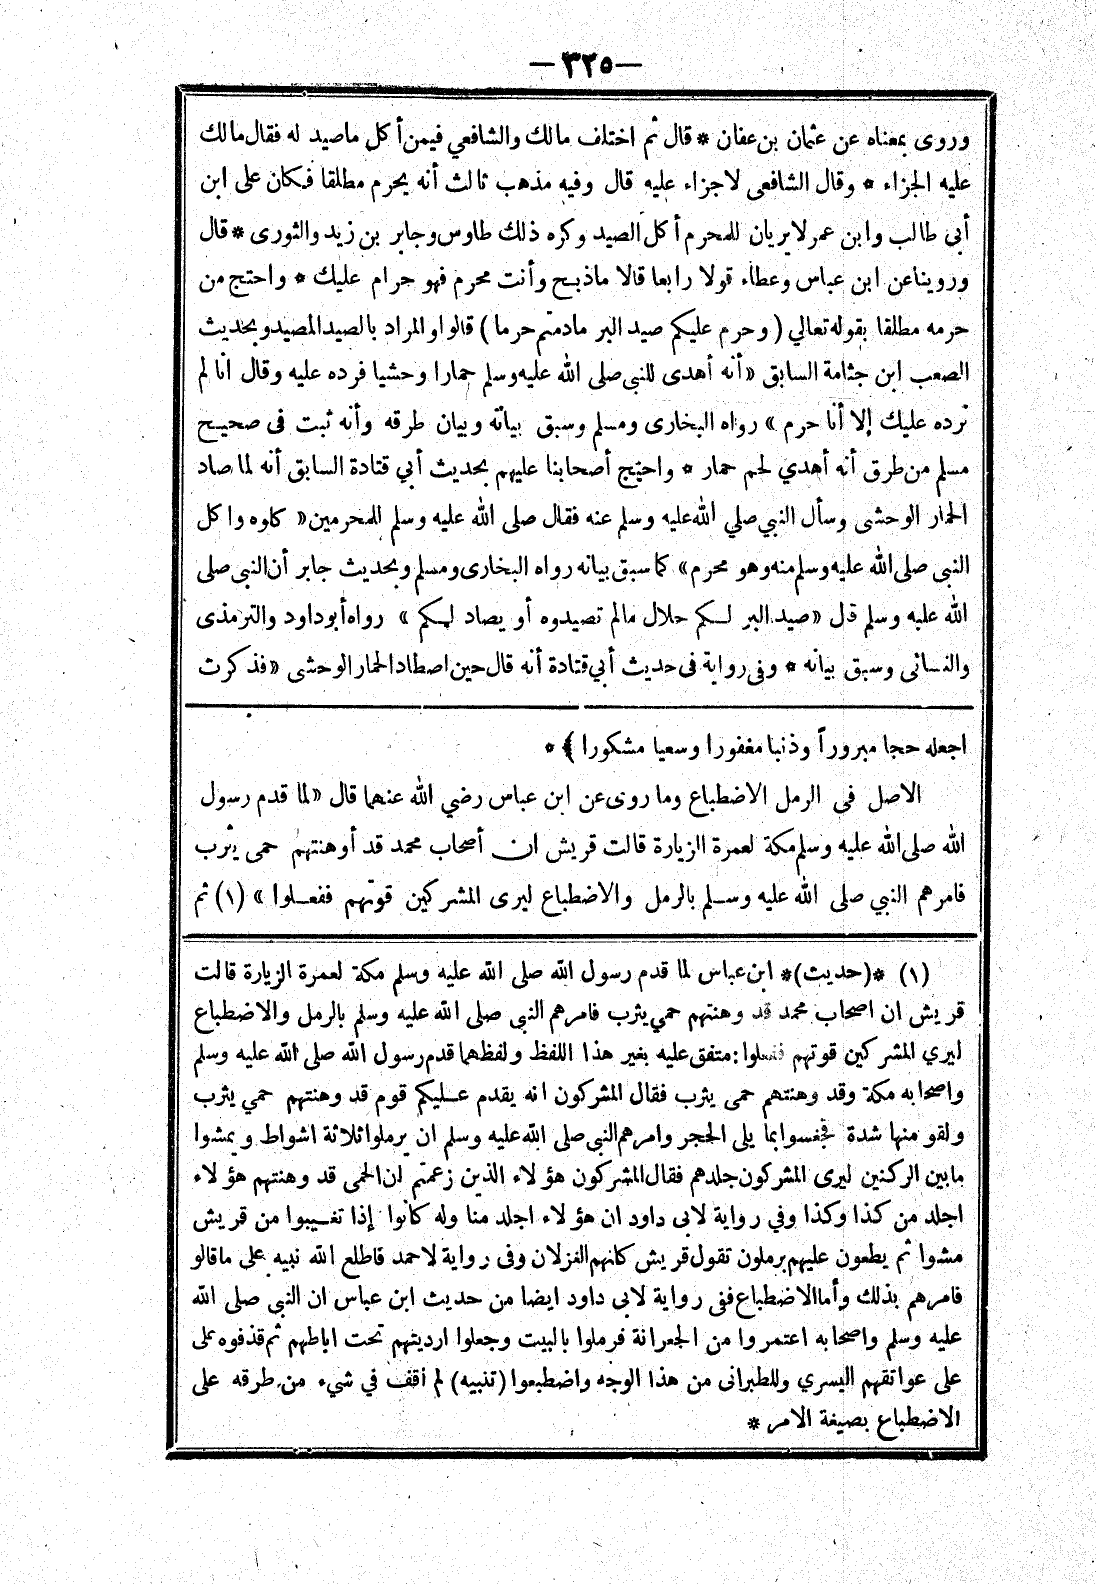 —٣٢٥—
وروى بمعناه عن عثمان بن عفان * قال ثم اختلف مالك والشافعي فيمن أكل ماصيد له فقال مالك
عليه الجزاء * وقال الشافعى لاجزاء عليه قال وفيه مذهب ثالث أنه يحرم مطلقا فكان على ابن
أبي طالب وابن عمر لايريان للمحرم أكل الصيد وكره ذلك طاوس وجابر بن زيد والثورى * قال
وروينا عن ابن عباس وعطاء قولا رابعا قالا ماذبح وأنت محرم فهو حرام عليك * واحتج من
حرمه مطلقا بقوله تعالي ( وحرم عليكم صيد البر مادمتم حرما ) قالوا والمراد بالصيد المصيد وبحديث
الصعب ابن جثامة السابق «أنه أهدى للنبي صلى الله عليه وسلم حمارا وحشيا فرده عليه وقال انا لم
نرده عليك إلا أنا حرم » رواه البخارى ومسلم وسبق بيانه وبيان طرقه وأنه ثبت فى صحيح
مسلم من طرق أنه أهدي لحم حمار * واحتج أصحابنا عليهم بحديث أبي قتادة السابق أنه لما صاد
الحمار الوحشى وسأل النبي صلي الله عليه وسلم عنه فقال صلى الله عليه وسلم للمحرمين « كلوه واكل
النبى صلى الله عليه وسلم منه وهو محرم » كما سبق بيانه رواه البخارى ومسلم وبحديث جابر أن النبى صلى
الله عليه وسلم قال «صيد البر لكم حلال مالم تصيدوه أو يصاد لكم » رواه أبو داود والترمذى
والنسائى وسبق بيانه * وفى رواية فى حديث أبي قتادة أنه قال حين اصطاد الحمار الوحشى «فذكرت
اجعله حجا مبروراً وذنبا مغفورا وسعيا مشكورا ﴾ *
الاصل فى الرمل الاضطباع وما روى عن ابن عباس رضي الله عنهما قال «لما قدم رسول
الله صلى الله عليه وسلم مكة لعمرة الزيارة قالت قريش ان أصحاب محمد قد أوهنتهم حمى يثرب
فامرهم النبي صلى الله عليه وسلم بالرمل والاضطباع ليرى المشركين قوتهم ففعلوا » (١) ثم
(١) *(حديث)* ابن عباس لما قدم رسول الله صلى الله عليه وسلم مكة لعمرة الزيارة قالت
قريش ان اصحاب محمد قد وهنتهم حمي يثرب فامرهم النبى صلى الله عليه وسلم بالرمل والاضطباع
ليري المشركين قوتهم ففعلوا : متفق عليه بغير هذا اللفظ ولفظهما قدم رسول الله صلى الله عليه وسلم
واصحابه مكة وقد وهنتهم حمى يثرب فقال المشركون انه يقدم عليكم قوم قد وهنتهم حمي يثرب
ولقو منها شدة فجلسوا بما يلى الحجر وامرهم النبى صلى الله عليه وسلم ان يرملوا ثلاثة اشواط ويمشوا
مابين الركنين ليرى المشركون جلدهم فقال المشركون هؤلاء الذين زعمتم ان الحمى قد وهنتهم هؤلاء
اجلد من كذا وكذا وفي رواية لابى داود ان هؤلاء اجلد منا وله كانوا إذا تغيبوا من قريش
مشوا ثم يطلعون عليهم يرملون تقول قريش كانهم الغزلان وفى رواية لاحمد فاطلع الله نبيه على ماقالو
فامرهم بذلك وأما الاضطباع ففى رواية لابى داود ايضا من حديث ابن عباس ان النبي صلى الله
عليه وسلم واصحابه اعتمروا من الجعرانة فرملوا بالبيت وجعلوا ارديتهم تحت اباطهم ثم قذفوه على
على عواتقهم اليسري وللطبرانى من هذا الوجه واضطبعوا (تنبيه) لم أقف في شيء من طرقه على
الاضطباع بصيغة الامر *